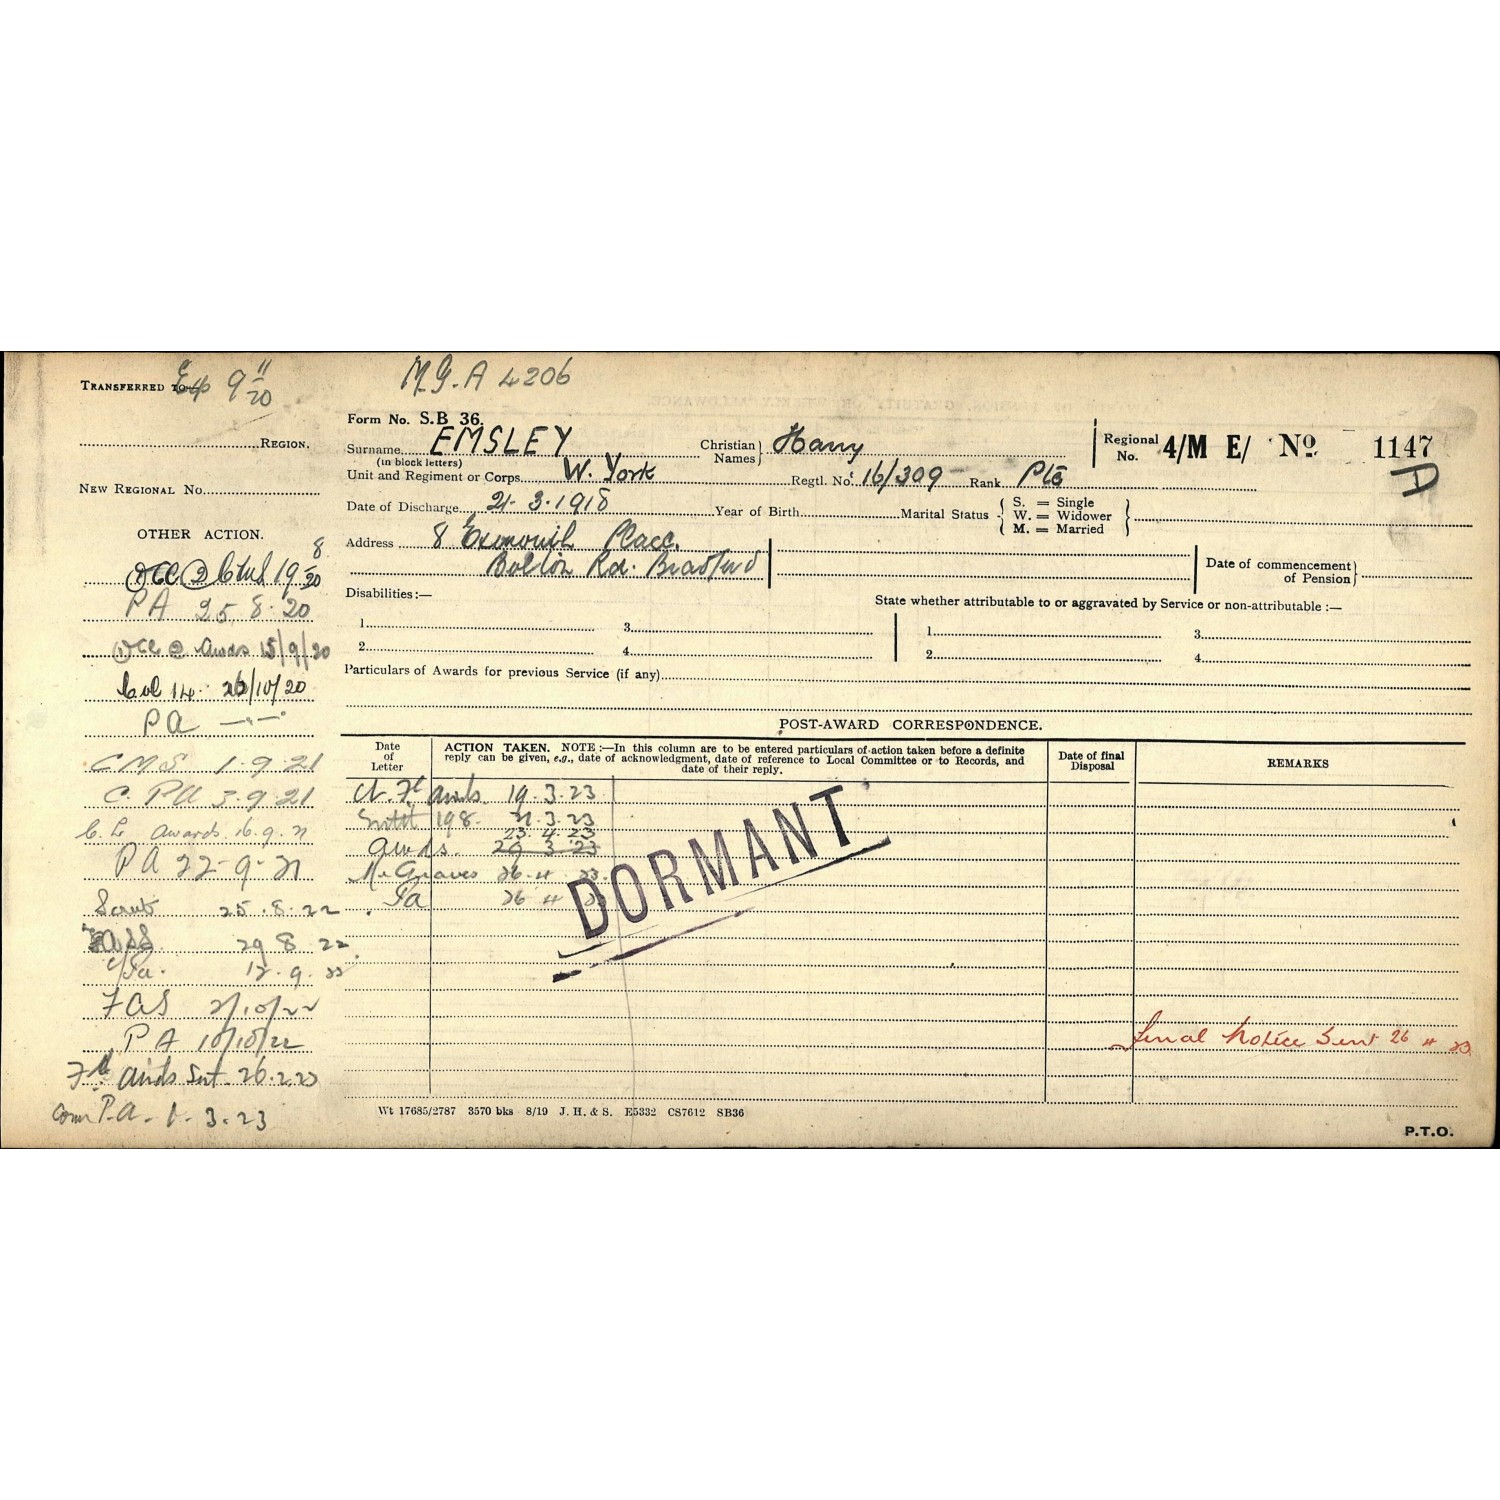 TRANSFERRED TO 9 11/20
M.G.A 4206
REGION.
NEW REGIONAL No.
OTHER ACTION.
19 8/20
PA 25.8.20
Awds 15/9/20
14. 26/10/20
PA —"—
CMS 1.9.21
C. PA 3.9.21
Awards 16.9.21
PA 22-9-21
Scrut 25.8.22
29 8 22
Pa. 12.9.22
FAS 2/10/22
PA 10/10/22
Awds Sent 26.2.23
P.A. 1.3.23
Form No. S.B 36.
Surname EMSLEY Christian Names } Harry Regional No. 4/M E/ No 1147
(in block letters)
D
Unit and Regiment or Corps W. York Regtl. No. 16/309 Rank Pte
Date of Discharge 21.3.1918 Year of Birth Marital Status { S. = Single W. = Widower M. = Married }
Address 8 Exmouth Place.
Bolton Rd. Bradford
Date of commencement of Pension }
Disabilities:—
State whether attributable to or aggravated by Service or non-attributable :—
1 3 1 3
2 4 2 4
Particulars of Awards for previous Service (if any)
POST-AWARD CORRESPONDENCE.
Date of Letter
ACTION TAKEN. NOTE :—In this column are to be entered particulars of action taken before a definite
reply can be given, e.g., date of acknowledgment, date of reference to Local Committee or to Records, and
date of their reply.
Date of final Disposal
REMARKS
Awds 19.3.23
198. 21.3.23
23.4.23
Awds. 29 3 23
Mr Graves 26.4.23.
Pa 26 4 23
DORMANT
Final Notice Sent 26 4 23
Wt 17685/2787 3570 bks 8/19 J. H. & S. E5332 CS7612 SB36
P.T.O.